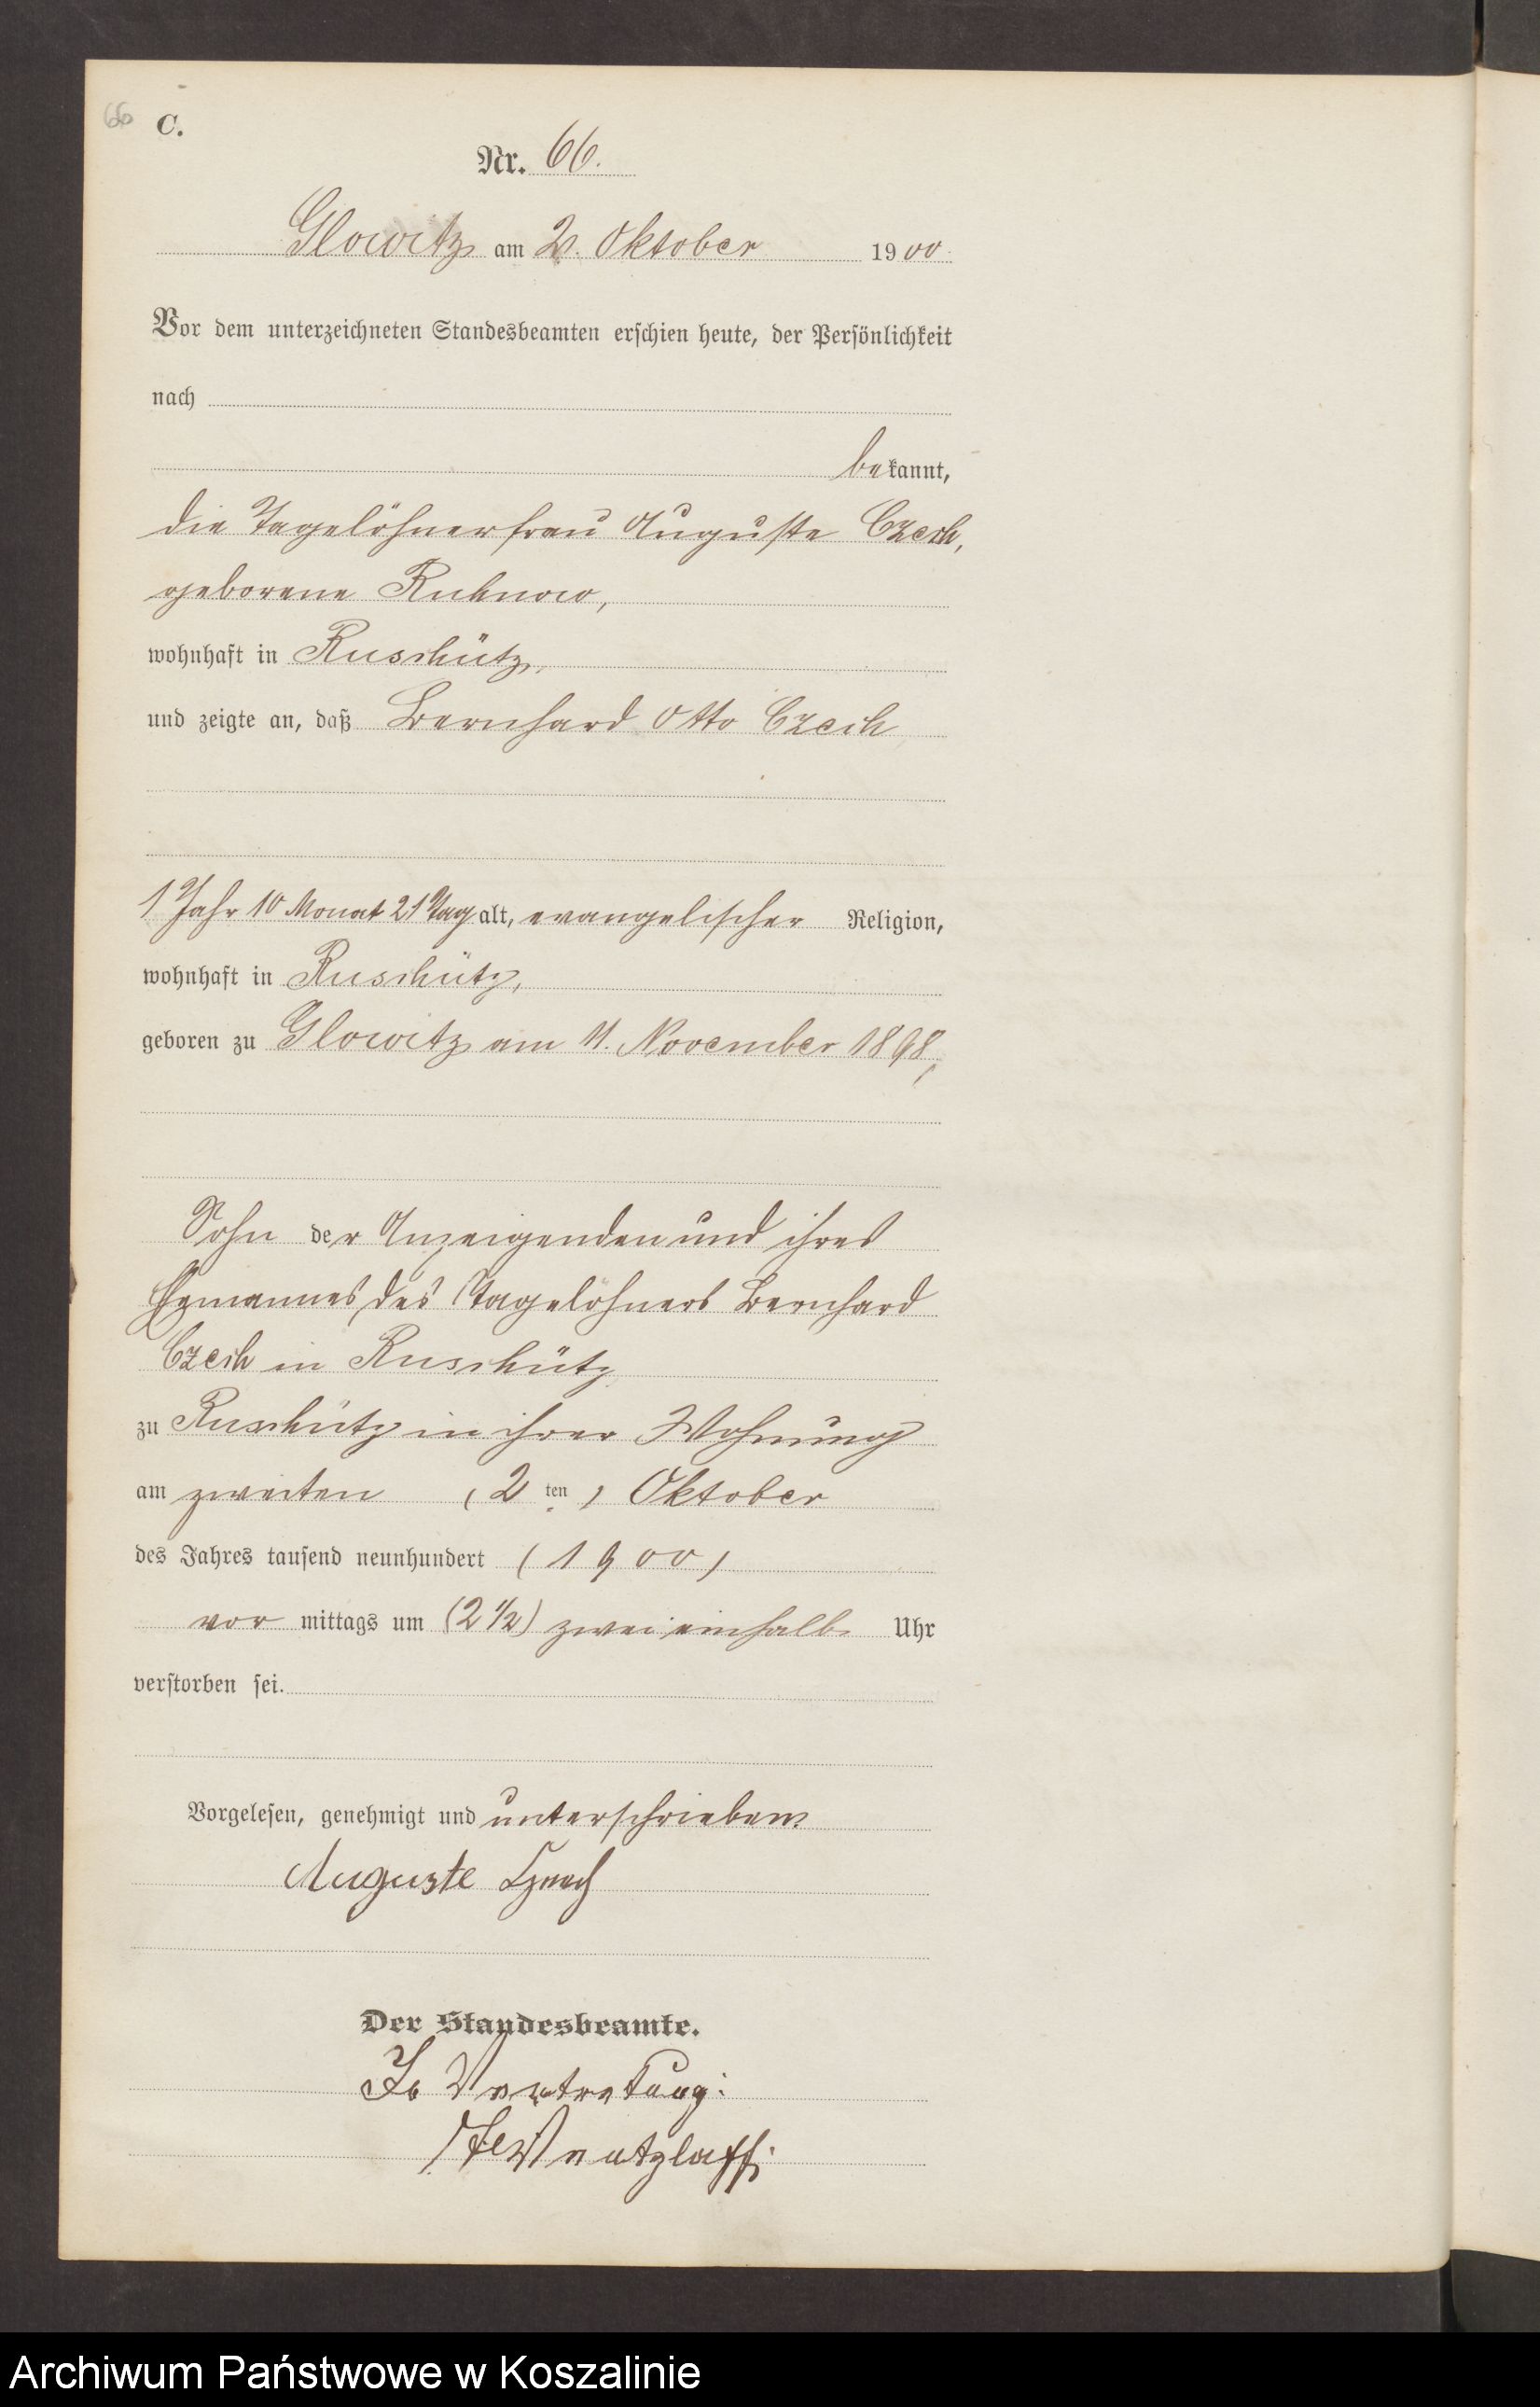 66 C.
Nr. 66.
Glowitz am 2. Oktober 1900.
Vor dem unterzeichneten Standesbeamten erschien heute, der Persönlichkeit
nach
bekannt,
die Tagelöhnerfrau Auguste Czech,
geborene Rubnow,
wohnhaft in Ruschütz,
und zeigte an, daß Bernhard Otto Czech
1 Jahr 10 Monat 21 Tag alt, evangelischer Religion,
wohnhaft in Ruschütz,
geboren zu Glowitz am 11. November 1898,
Sohn der Anzeigenden und ihres
Ehemannes des Tagelöhners Bernhard
Czech in Ruschütz
zu Ruschütz in ihrer Wohnung
am zweiten (2 ten) Oktober
des Jahres tausend neunhundert (1900)
vor mittags um (2 1/2) zwei einhalb Uhr
verstorben sei.
Vorgelesen, genehmigt und unterschrieben
Auguste Czech
Der Standesbeamte.
In Vertretung:
Wentzlaff.
Archiwum Państwowe w Koszalinie